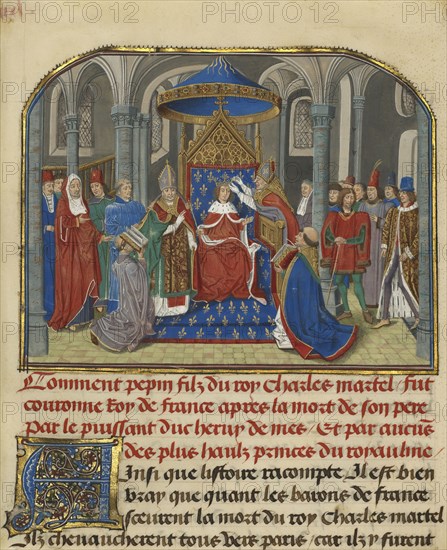 Comment pepin filz du roy Charles martel / fut
couronne Roy de france apres la mort de son pere
par le puissant duc heruy de mes / Et par aucuns
des plus haulz princes du royaulme
Ainsi que listoire racompte Il est bien
vray que quant les barons de france
sceurent la mort du roy Charles martel
Ilz cheuaucherent tous vers paris / car ilz y furent